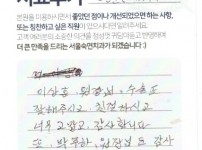 본원을 이용하시면서 좋았던 점이나 개선되었으면 하는 사항,
또는 칭찬하고 싶은 직원이 있으시다면 알려주세요.
고객 여러분의 소중한 의견을 정성껏 귀담아듣고 반영하여
더 큰 만족을 드리는 서울숙면치과가 되겠습니다 :)
이상호 원장님, 수호도
잘해주시고 친절하시고
너무 고맙고 감사합니다
또 박주하 원장님도 감사